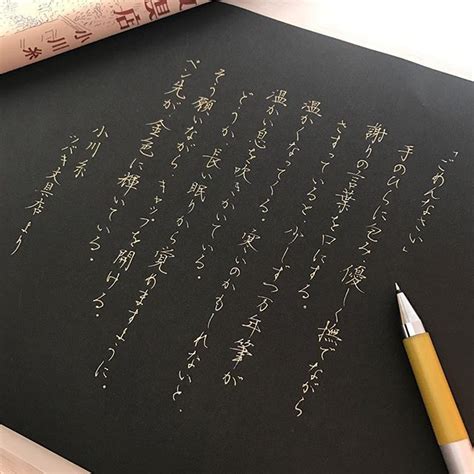 「ごめんなさい」
手のひらに包み優しく撫でながら
謝りの言葉を口にする。
さすっていると少しずつ万年筆が
温かくなってくる。寒いのかもしれないと、
温かい息を吹きかけている。
どうか、長い眠りから覚めますように。
そう願いながら、キャップを開ける。
ペン先が金色に輝いている。
小川糸
ツバキ文具店より
具店
小川 糸